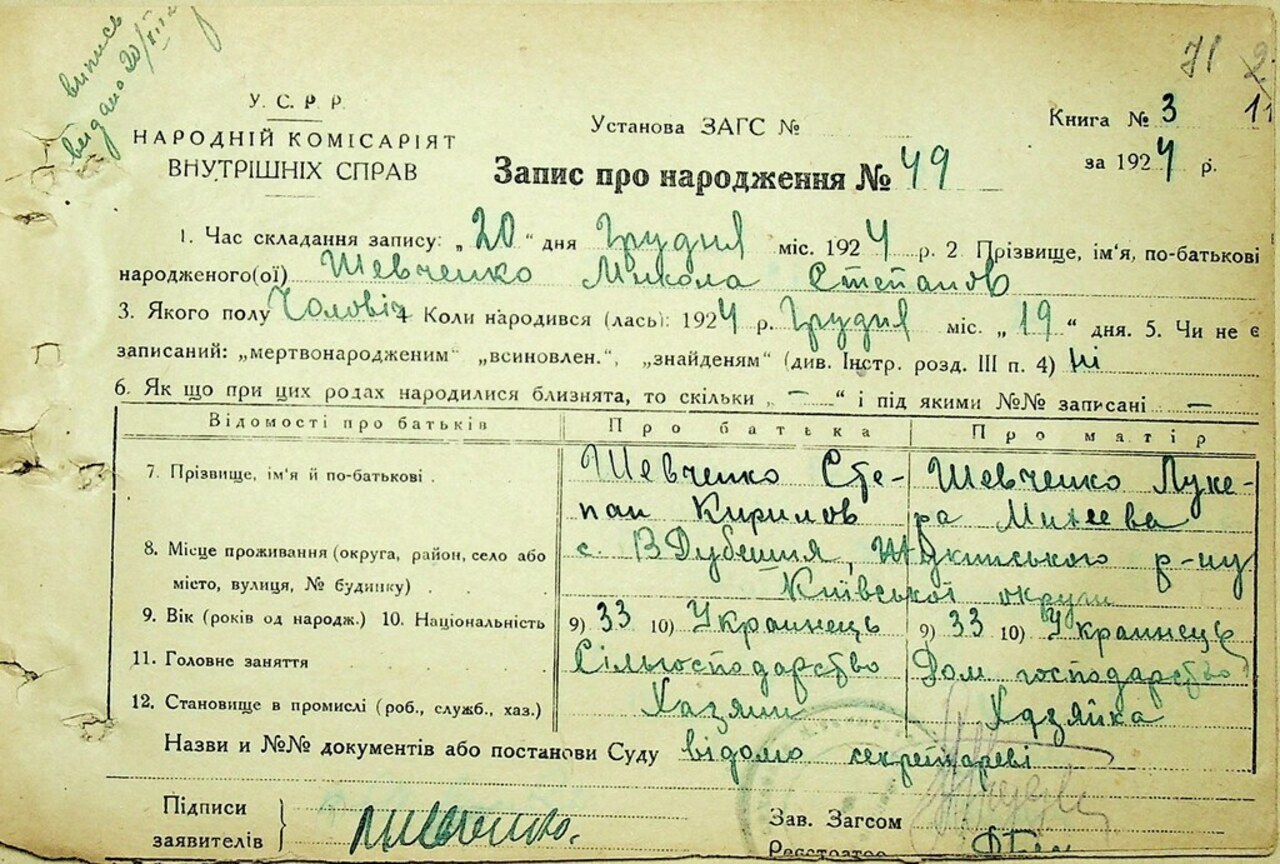 випись
видано 20/
71
У. С. Р. Р.
НАРОДНІЙ КОМІСАРІЯТ
ВНУТРІШНІХ СПРАВ
Установа ЗАГС №
Книга № 3
11
за 1924 р.
Запис про народження № 49
1. Час складання запису: „20“ дня Грудня міс. 1924 р. 2 Прізвище, ім'я, по-батькові
народженого(ої) Шевченко Микола Степанов
3. Якого полу Чоловіч 4 Коли народився (лась): 1924 р. Грудня міс. „19“ дня. 5. Чи не є
записаний: „мертвонародженим“ „всиновлен.“, „знайденям“ (див. Інстр. розд. III п. 4) Ні
6. Як що при цих родах народилися близнята, то скільки „ — “ і під якими №№ записані —
Відомості про батьків Про батька Про матір
7. Прізвище, ім'я й по-батькові . Шевченко Сте- Шевченко Луке-
пан Кирилов ра
8. Місце проживання (округа, район, село або с. В Дубешня, Жукинського р-ну
місто, вулиця, № будинку) . . . Київської округи
9. Вік (років од народж.) 10. Національність 9) 33 10) Українець 9) 33 10) Українець
11. Головне заняття . . . Сільгосподарство Дом господарство
12. Становище в промислі (роб., служб., хаз.) Хазяин Хазяйка
Назви и №№ документів або постанови Суду відомо секретареві
Підписи
заявителів
Шевченко.
Зав. Загсом
Реєстратор